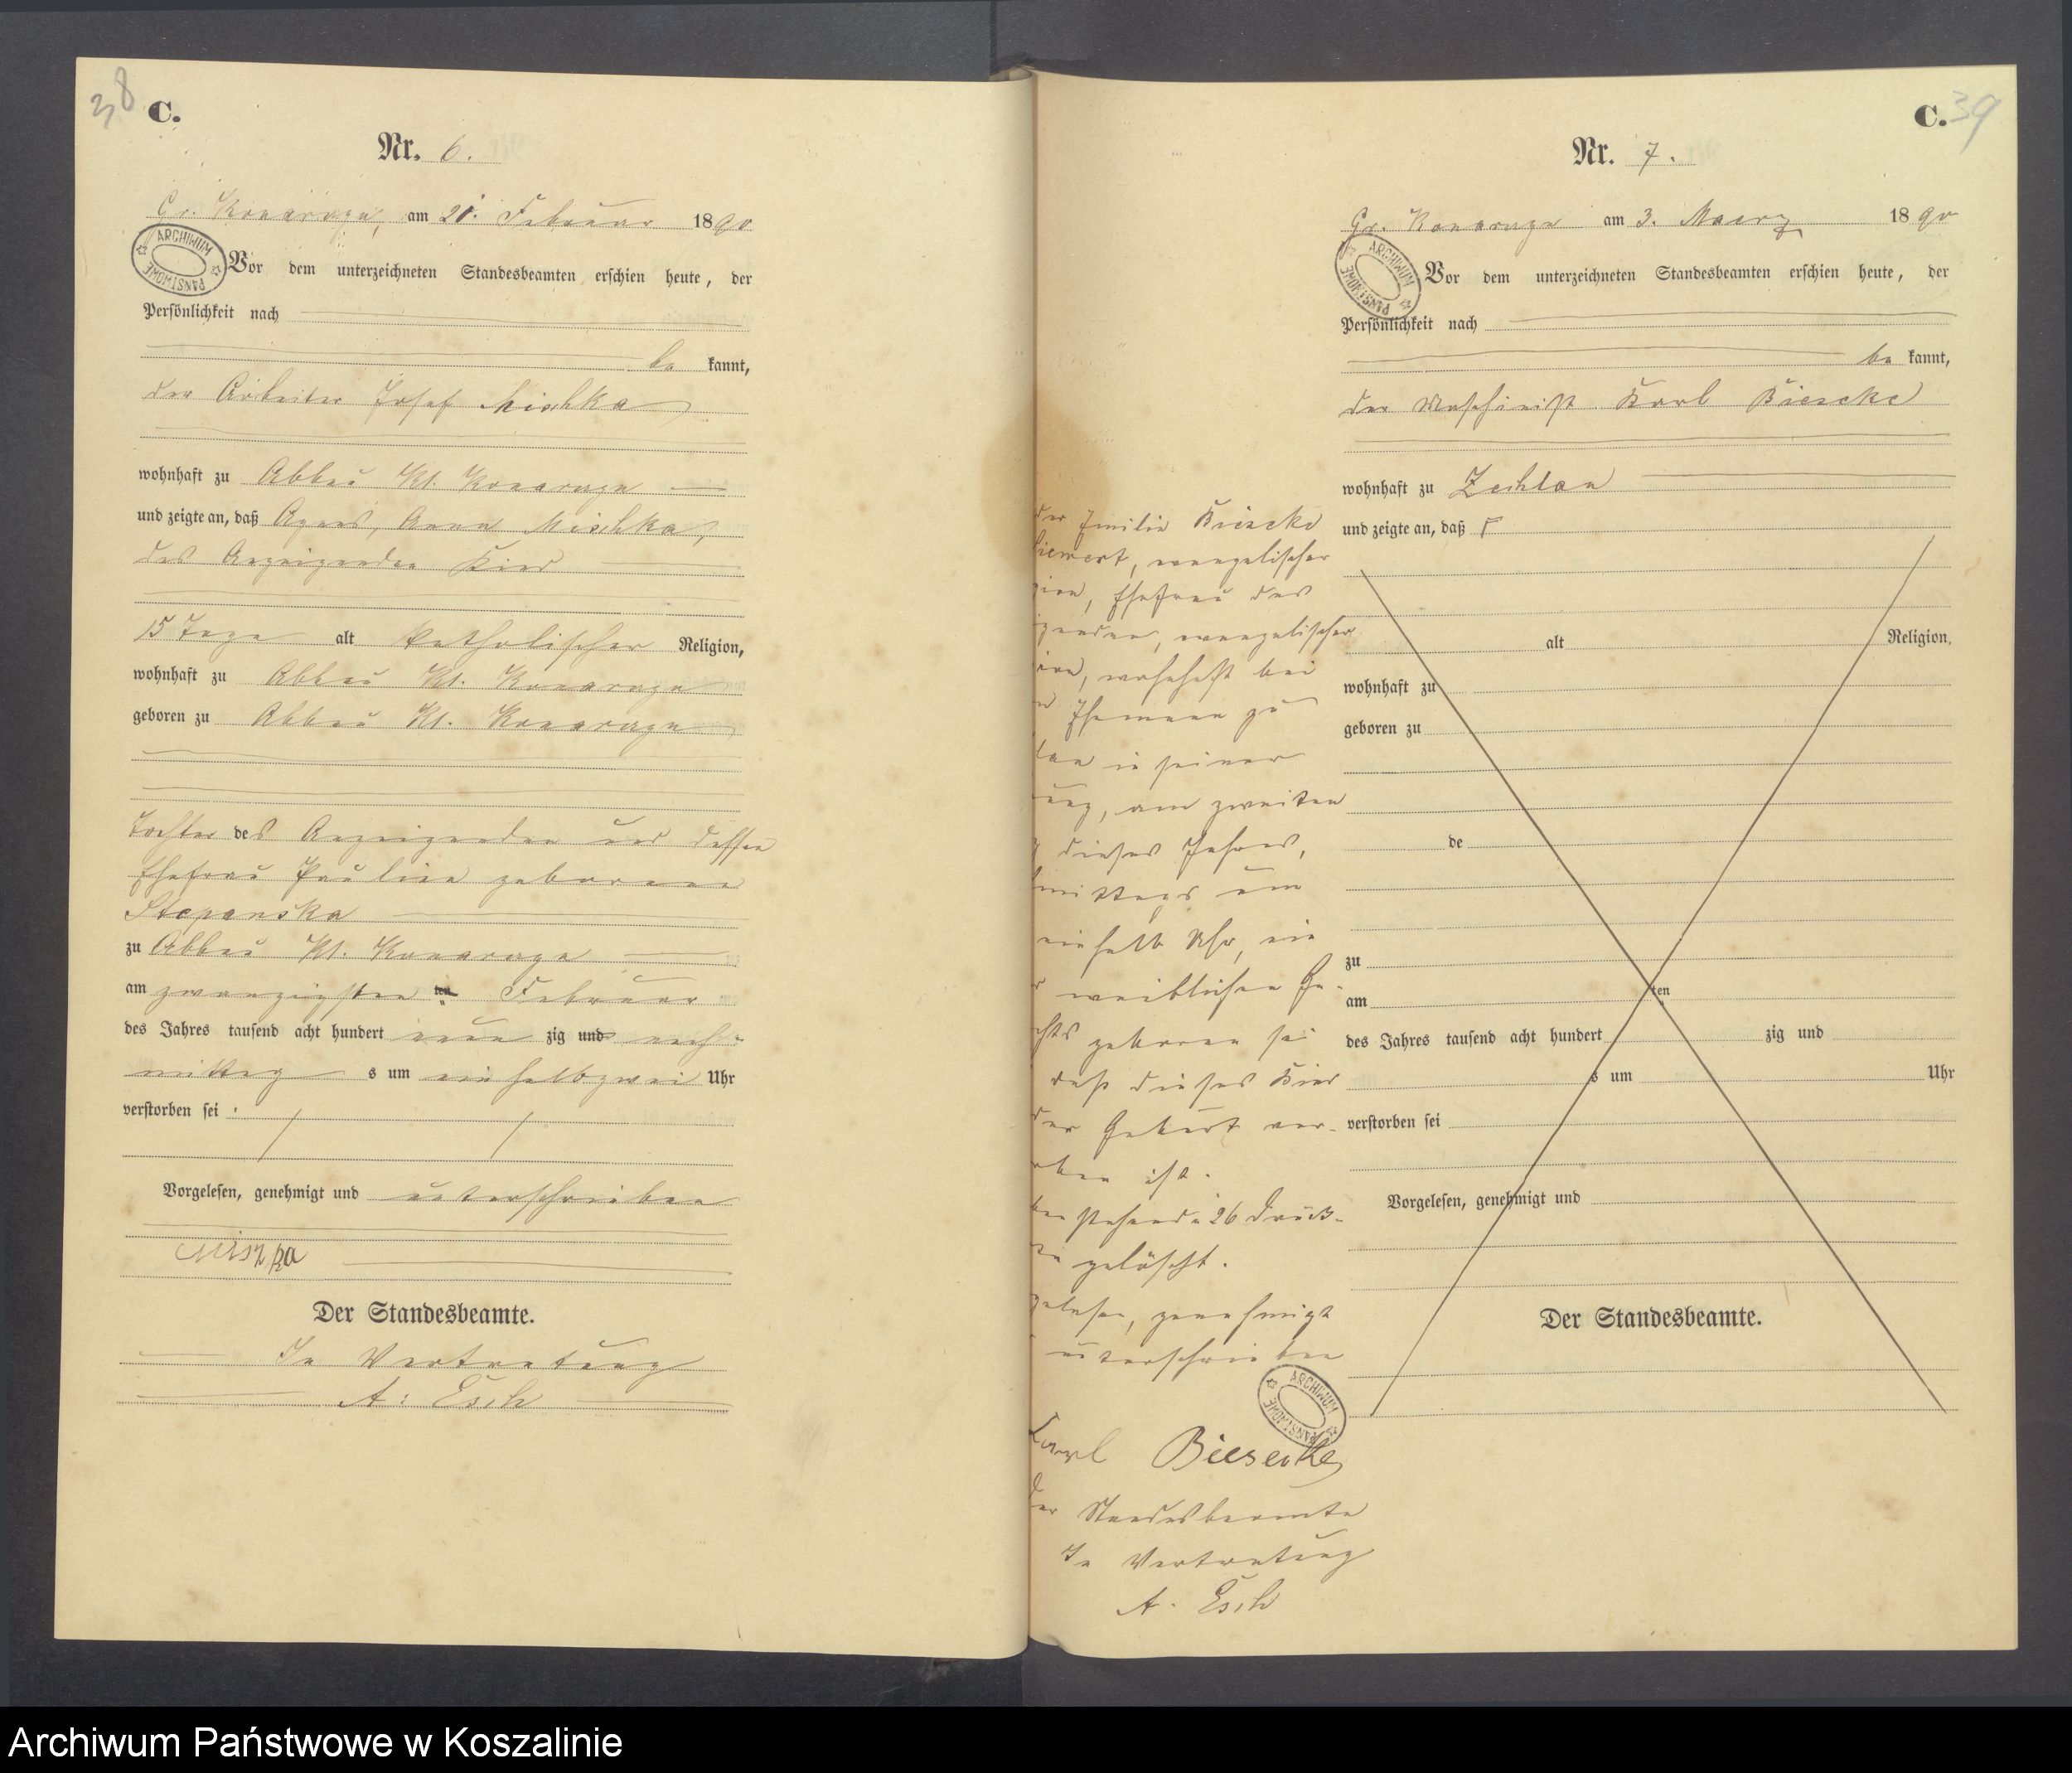 38
C.
Nr. 6.
Gr. Konarzyn, am 21. Februar 1890
ARCHIWUM PAŃSTWOWE
Vor dem unterzeichneten Standesbeamten erschien heute, der
Persönlichkeit nach
be kannt,
der Arbeiter Josef Mischka
wohnhaft zu Abbau Kl. Konarzyn
und zeigte an, daß Agnes, Anna Mischka,
des Anzeigenden Kind
15 Tage alt katholischer Religion,
wohnhaft zu Abbau Kl. Konarzyn
geboren zu Abbau Kl. Konarzyn
Tochter des Anzeigenden und dessen
Ehefrau Pauline geborene
Stepanska
zu Abbau Kl. Konarzyn
am zwanzigsten ten Februar
des Jahres tausend acht hundert neun zig und nach-
mittag s um einhalbzwei Uhr
verstorben sei.
Vorgelesen, genehmigt und unterschrieben
Miszka
Der Standesbeamte.
In Vertretung
A. Esch
C. 39
Nr. 7.
Gr. Konarzyn am 3. Maerz 1890
ARCHIWUM PAŃSTWOWE
Vor dem unterzeichneten Standesbeamten erschien heute, der
Persönlichkeit nach
be kannt,
der Maschinist Karl Biesecke
wohnhaft zu Zechlau
und zeigte an, daß
alt Religion,
wohnhaft zu
geboren zu
de
zu
am ten
des Jahres tausend acht hundert zig und
s um Uhr
verstorben sei
Vorgelesen, genehmigt und
Der Standesbeamte.
der Emilie Biesecke
evangelischer
Ehefrau des
evangelischer
wohnhaft bei
Ehemann zu
in seiner
am zweiten
dieses Jahres,
mittags um
einhalb Uhr, ein
weiblichen Ge-
geboren sei
daß dieses Kind
der Geburt ver-
ist.
26 Druck-
gelöscht.
genehmigt
unterschrieben
ARCHIWUM PAŃSTWOWE
Karl Biesecke
Der Standesbeamte
In Vertretung
A. Esch
Archiwum Państwowe w Koszalinie